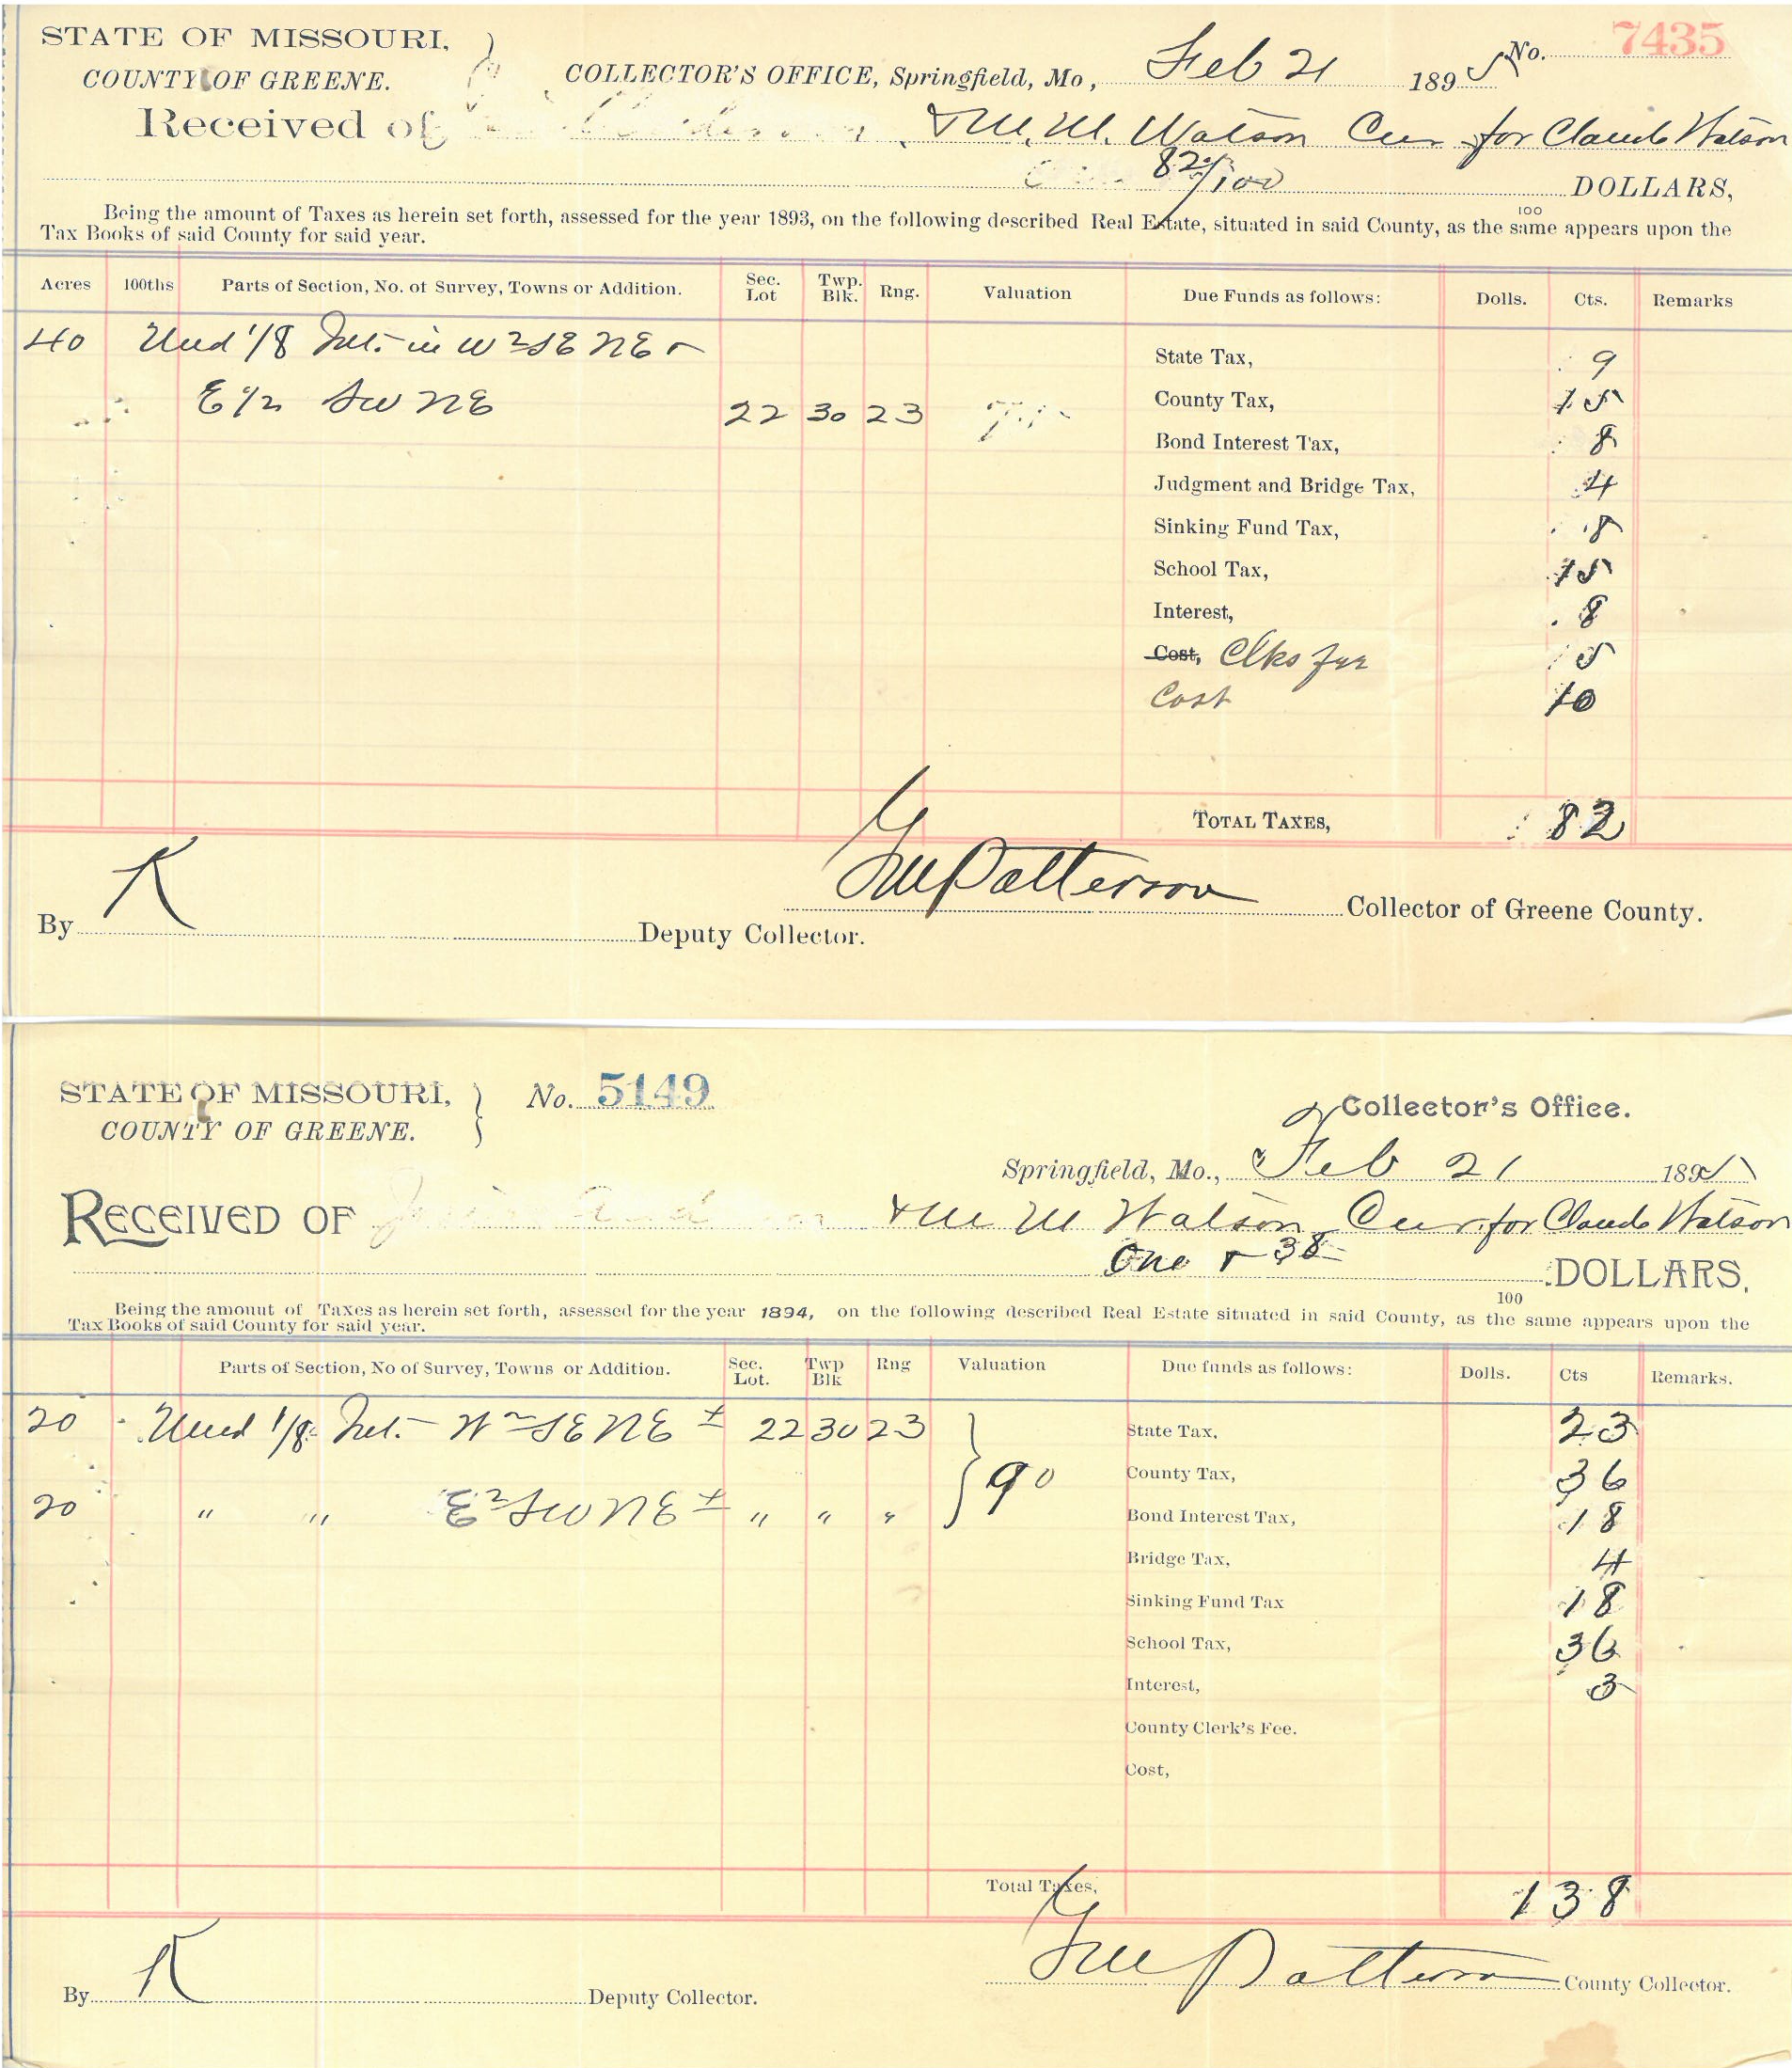 STATE OF MISSOURI, No. 7435
COUNTY OF GREENE. COLLECTOR'S OFFICE, Springfield, Mo., Feb 21 1895
Received of & M. M. Watson Cur for Claude Watson
82/100 DOLLARS,
100
Being the amount of Taxes as herein set forth, assessed for the year 1893, on the following described Real Estate, situated in said County, as the same appears upon the
Tax Books of said County for said year.
Acres 100ths Parts of Section, No. of Survey, Towns or Addition. Sec. Lot Twp. Blk. Rng. Valuation Due Funds as follows: Dolls. Cts. Remarks
40 Und 1/8 Int. in W 2 SE NE &
State Tax, 9
E 1/2 SW NE 22 30 23
County Tax, 15
Bond Interest Tax, 8
Judgment and Bridge Tax, 4
Sinking Fund Tax, 8
School Tax, 15
Interest, 8
Cost, Clks fee 5
Cost 10
TOTAL TAXES, 82
By K Deputy Collector.
Patterson Collector of Greene County.
STATE OF MISSOURI, No. 5149 Collector's Office.
COUNTY OF GREENE.
Springfield, Mo., Feb 21 1895
RECEIVED OF & M M Watson Cur. for Claude Watson
One & 38 DOLLARS,
100
Being the amount of Taxes as herein set forth, assessed for the year 1894, on the following described Real Estate situated in said County, as the same appears upon the
Tax Books of said County for said year.
Parts of Section, No of Survey, Towns or Addition. Sec. Lot. Twp Blk Rng Valuation Due funds as follows: Dolls. Cts Remarks.
20 Und 1/8 Int. W 2 SE NE 22 30 23
State Tax, 23
90
County Tax, 36
20 " " E 2 SW NE " " "
Bond Interest Tax, 18
Bridge Tax, 4
Sinking Fund Tax 18
School Tax, 36
Interest, 3
County Clerk's Fee.
Cost,
Total Taxes, 1 38
By K Deputy Collector.
Patterson County Collector.